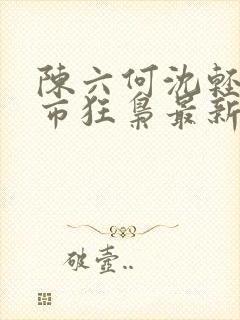 陳六何沈輕
市狂梟最新
破壺..